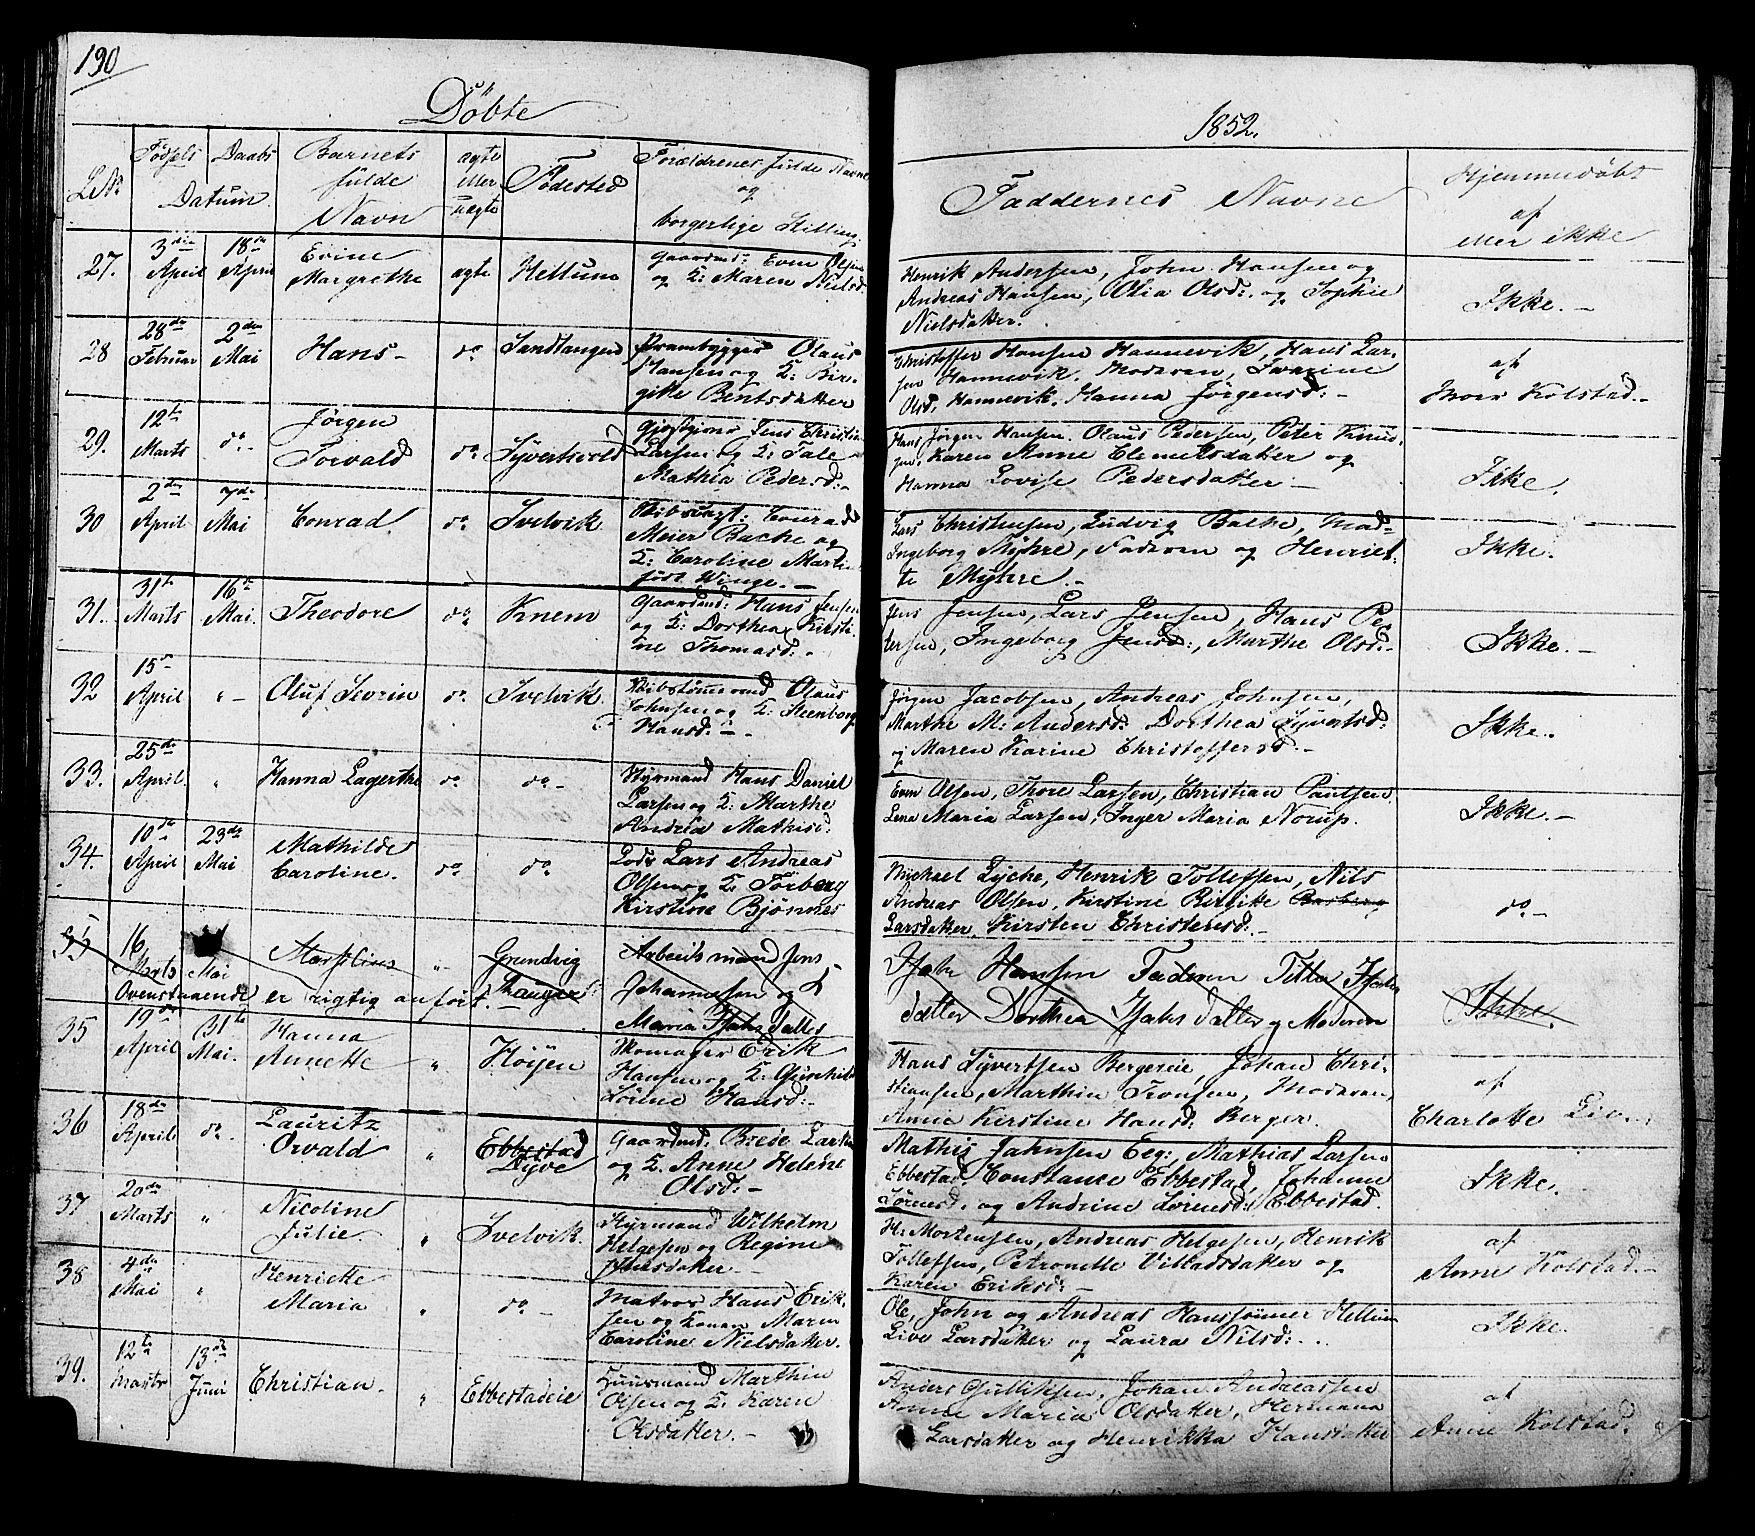 190
Döbte
1852.
LNo
Fødsels
Daabs
Datum
Barnets
fulde
Navn
ægte
eller
uægte
Fødested
Forældrenes fulde Navne
og
borgerlige Stilling.
Faddernes Navne
Hjemmedøbt
af
eller ikke
27.
3die
April
18de
April
Evine
Margrethe
ægte
Hellum
Gaardmd: Even Olsen
og K: Maren Nielsd
Henrik Andersen, John Hansen og
Andreas Hansen, Olia Olsd: og Sophie
Nielsdatter.
Ikke. -
28
28de
Februar
2den
Mai
Hans -
do
Sandtangen
Prambygger Olaus
Hansen og K: Bir-
gitte Bentsdatter
Christoffer Hansen Hannevik, Hans Lar-
sen Hannevik. Moderen, Ivarine
Olsd. Hannevik. Hanna Jørgensd: -
af
Moer Kolstad. -
29.
12te
Marts
do -
Jørgen
Torvald
do
Syverhvold
Jens Christian
Larsen og K: Tale
Mathia Pedersd: -
Hans Jørgen Hansen. Olaus Pedersen, Peter Knud-
sen. Karen Anne Clemetsdatter og
Hanna Lovise Pedersdatter -
Ikke.
30
2den
April
7de
Mai
Conrad
do
Svelvik
Conrad
Meier Bache og
K: Caroline Martine
født Winge. -
Lars Christensen, Ludvig Bache, Mad-
Ingeborg Myhre, Faderen og Henriet-
te Myhre. -
Ikke.
31.
31te
Marts
16de
Mai
Theodore
do
Knem
Gaardmd: Hans Jensen
og K: Dorthea Kirsti-
ne Thomasd: -
Jens Jensen, Lars Jensen, Hans Pe-
tersen, Ingeborg Jensd:, Marthe Olsd: -
Ikke. -
32
15de
April
" -
Oluf Severin
do
Svelvik
Skibstømmermd Olaus
Johnsen og K: Steenborg
Hansd: -
Jørgen Jacobsen, Andreas Johnsen,
Marthe M: Andersd: Dorthea Syvertsd:
og Maren Karine Christoffersd: -
Ikke.
33.
25de
April
"
Hanna Lagerthe
do
do -
Styrmand Hans Daniel
Larsen og K: Marthe
Andrea Mathisd:
Even Olsen, Thore Larsen, Christian Paulsen
Lena Maria Larsen, Inger Maria Norup.
Ikke. -
34.
10de
April
23de
Mai
Mathilde
Caroline.
do
do
Lods Lars Andreas
Olsen og K: Torberg
Kirstine Bjønnes
Michael Lyche, Henrik Tollefsen, Nils
Andreas Olsen, Kirstine Birgitte
Larsdatter, Kirsten Christensd: -
do -
35
16
Marts
Mai
"
Grundvig
Arbeidsmand Jens
Johannesen og K
Maria Isaksdatter
Isak Hansen Faderen Isaks
datter Dorthea Isaksdatter og Moderen
Ikke.
Ovenstaaende er rigtig anført.
35
19de
April
31te
Mai.
Hanna
Annette
"
Höyen
Skomager Erik
Hansen og K: Gunhild
Lovine Hansd: -
Hans Syvertsen Bergereie, Johan Chri-
stiansen, Marthin Tronsen, Moderen,
Annie Kirstine Hansd: Berger.
af
Charlotte
36
18de
April
do -
Lauritz
Orvald
"
Ebbestad
Dyve
Gaardmd: Brede Larsen
og K. Anne Helene
Olsd: -
Mathis Jahnsen Eeg, Mathias Larsen
Ebbestad, Constance Ebbestad, Johanne
og Andrine Ebbestad.
Ikke.
37
20de
Marts
"
Nicoline
Julie
"
Svelvik.
Styrmand Wilhelm
Helgesen og Regine
H: Mortensen, Andreas Helgesen, Henrik
Tollefsen, Petronelle Villadsdatter og
Karen Eriksd: -
af
Anne Kolstad. -
38
4de
Mai
"
Henriette
Maria
"
do -
Matros Hans Erik-
sen og Konen Maren
Caroline Nielsdatter.
Ole, John og Andreas Hanssønner Hellum
Live Larsdatter og Laura Nilsd: -
Ikke.
39.
12te
Marts
13de
Juni
Christian.
"
Ebbestadeie
Huusmand Marthin
Olsen og K. Karen
Olsdatter. -
Anders Gulliksen, Johan Andreassen
Anne Maria Olsdatter, Hermana
Larsdatter og Henrikka Hansdatter
af
Anne Kolstad.